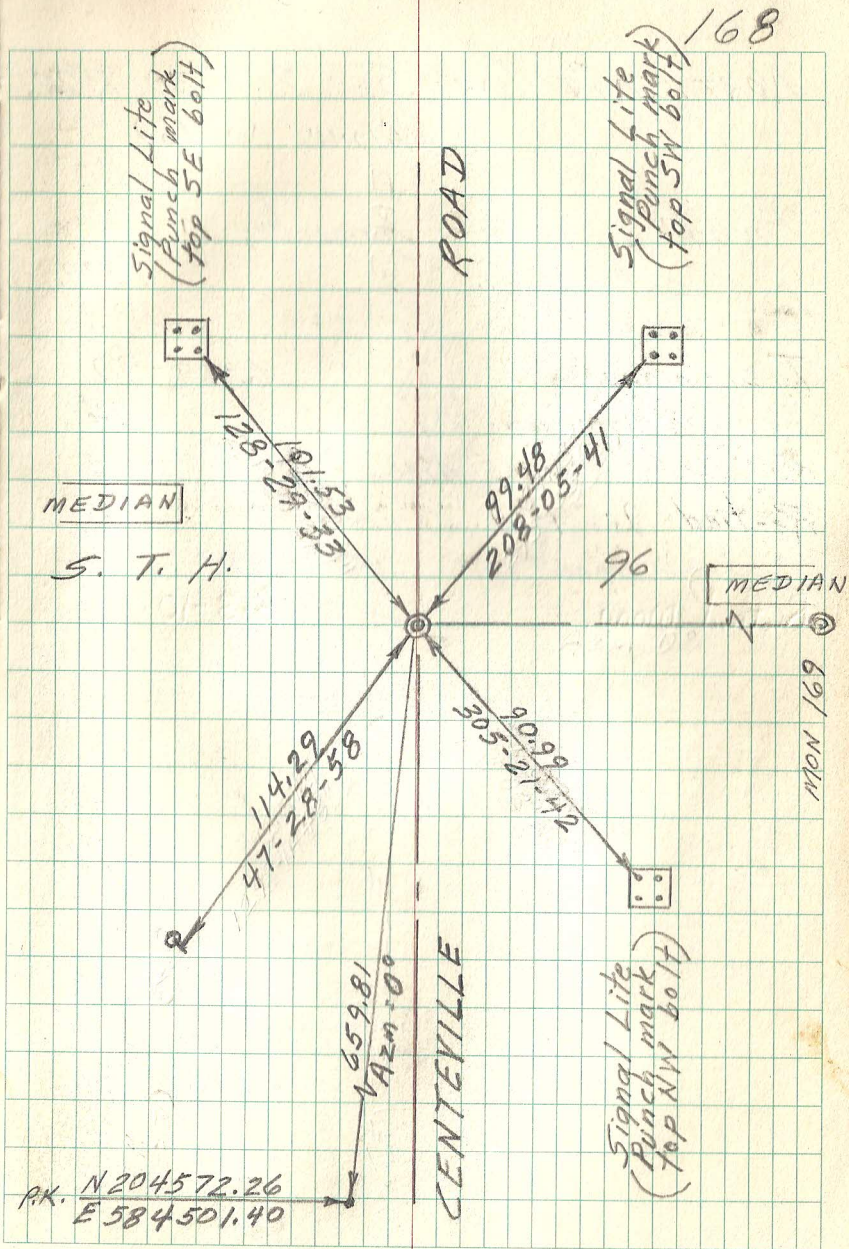 168
Signal Lite
(Punch mark
top SE bolt)
ROAD
Signal Lite
(Punch mark
top SW bolt)
101.53
128-29-33
99.48
208-05-41
MEDIAN
S. T. H.
96
MEDIAN
MON 169
114.29
47-28-58
90.99
305-21-42
659.81
Azm=0°
CENTEVILLE
Signal Lite
(Punch mark
top NW bolt)
P.K. N 204572.26
E 584501.40